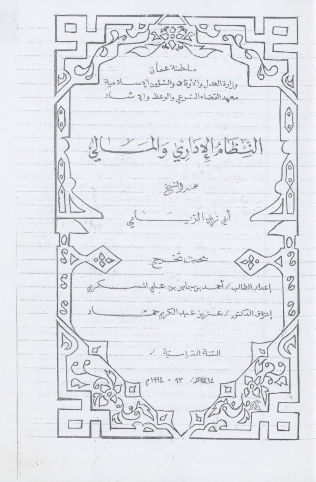 سلطنة عمان
وزارة العدل والأوقاف والشؤون الإسلامية
معهد القضاء الشرعي والوعظ والإرشاد
النظام الإداري والمالي
عند الشيخ
أبي زيد الريامي
بحث تخرج
إعداد الطالب / أحمد بن جابر بن علي المسكري
إشراف الدكتور / عزيز عبد الكريم حماد
السنة الدراسية /
١٤١٤هـ / ٩٣ - ١٩٩٤م